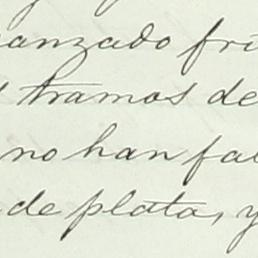 anzado fri
tramos de
no han fal
de plata, y